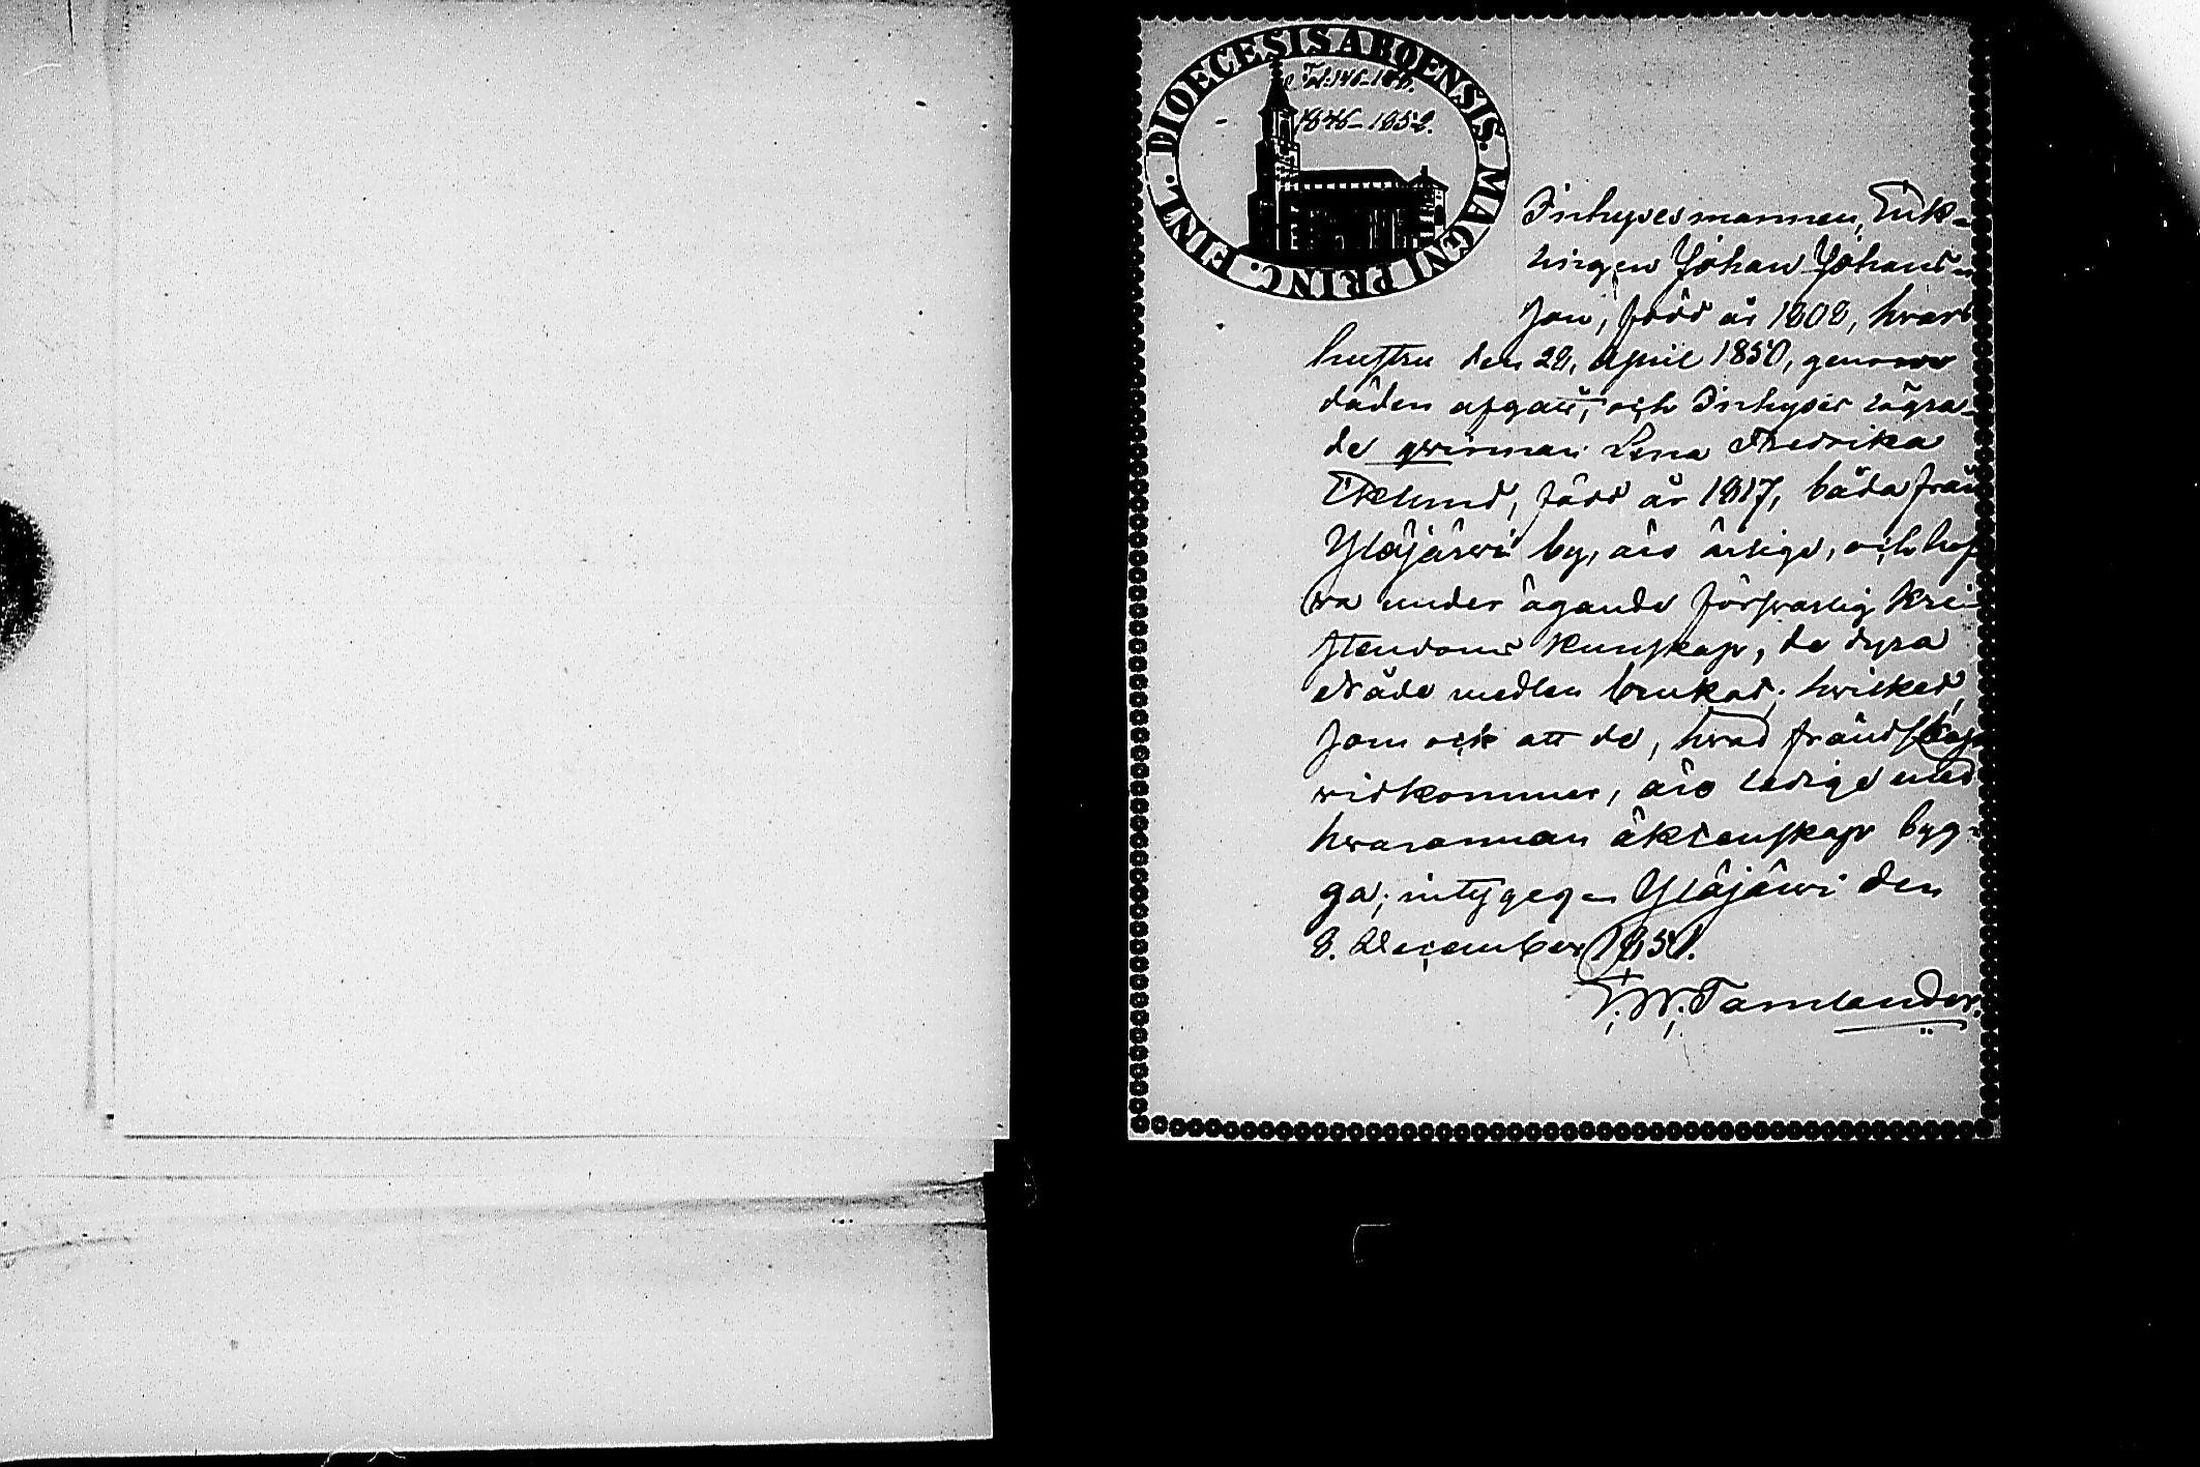 DIOECESIS ABOENSIS. MAGNI PRINC. FINL.
Fol. 146-
1846-1852.
Inhysesmannen, Enk-
lingen Johan Johans-
son, född år 1802, hvars
hustru den 28. April 1850, genom
döden afgått, och Inhyses lägra-
de qvinnan Lena Fredrika
Eklund, född år 1817, båda från
Ylöjärwi by, äro ärlige, och haf
wa under ägande försvarlig kri-
stendoms kunskap, de dyra
Nåde medlen brukat; hwilket,
som ock att de, hvad frändskap
widkommer, äro ledige med
hwarannan äktenskap byg-
ga; intygeg Ylöjärwi den
8. December 1851.
F. W. Tamlander.